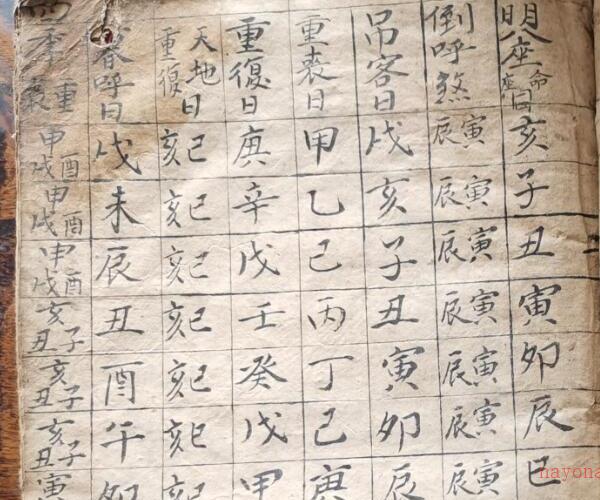 明座命座同亥子丑寅卯辰巳
倒呼煞寅辰寅辰寅辰寅辰寅辰寅辰寅辰
吊客日戌亥子丑寅卯辰
重丧日甲乙己丙丁己庚
重復日庚辛戊壬癸戊甲
天地重復日巳亥巳亥巳亥巳亥巳亥巳亥巳亥
呼日戌未辰丑酉午卯
四季重喪酉申戌酉申戌酉申戌子亥丑子亥丑子亥丑寅
nayona